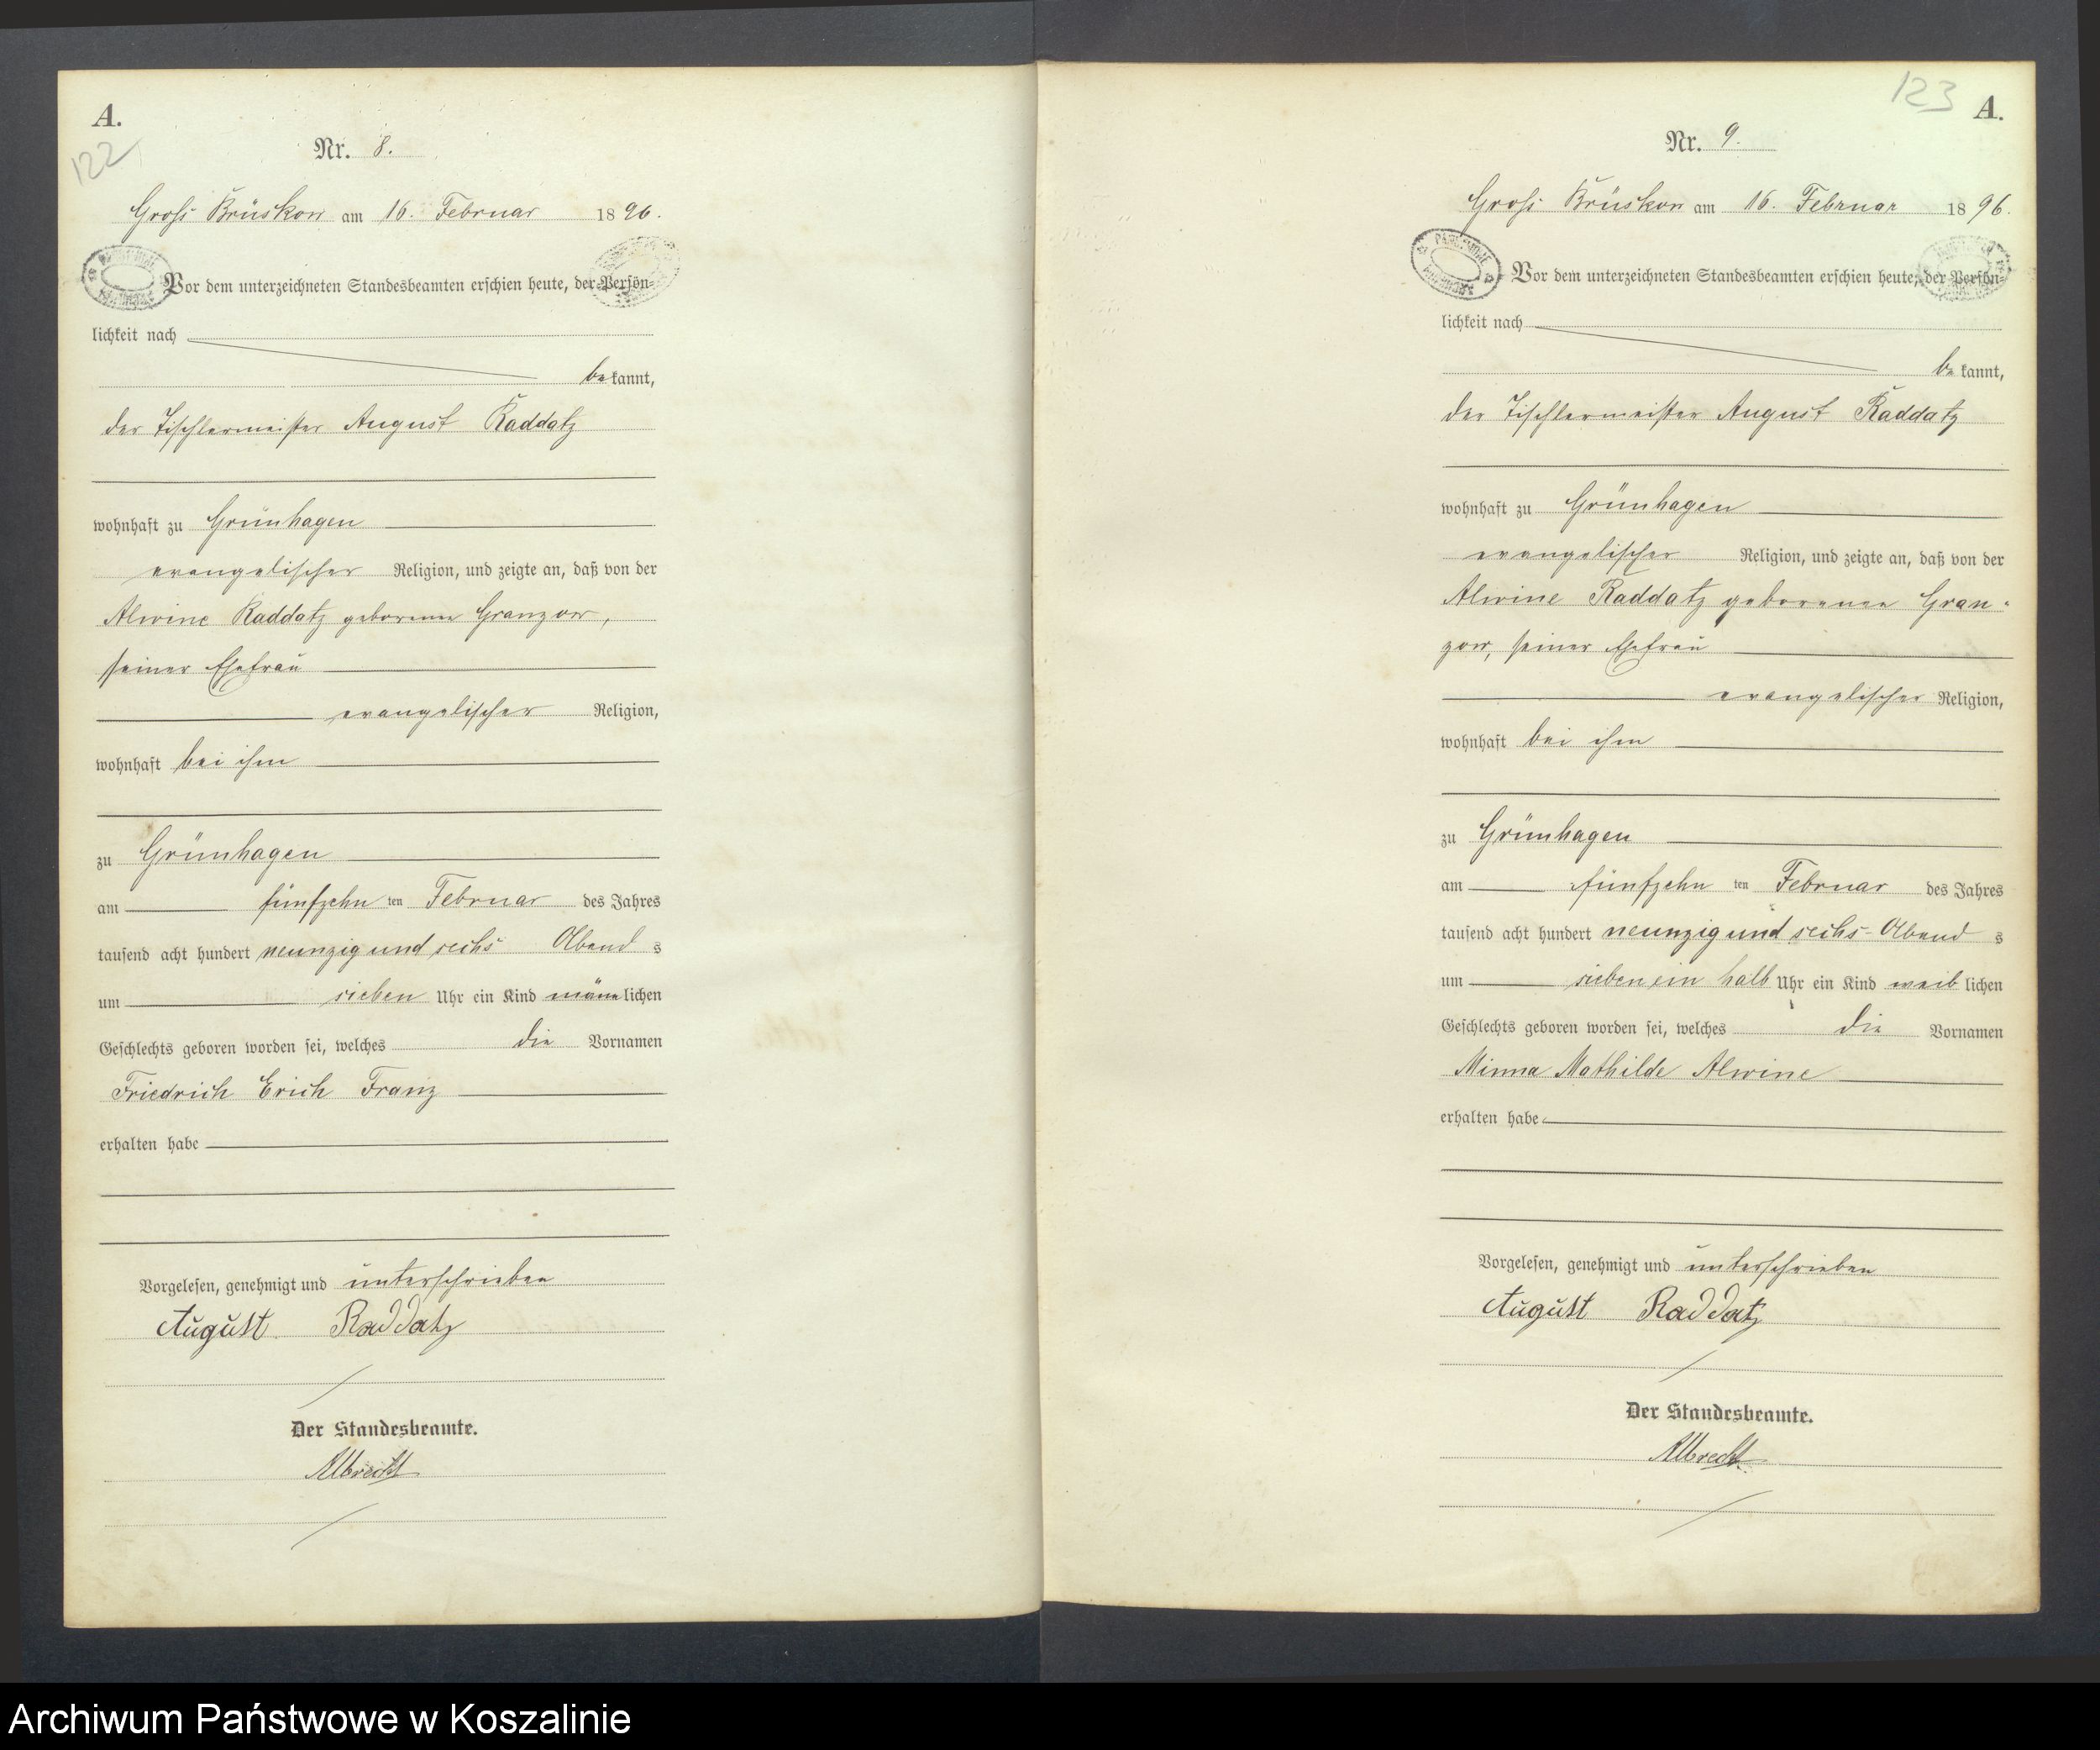 A.
122
Nr. 8.
Groß Brüskow am 16. Februar 1896.
Vor dem unterzeichneten Standesbeamten erschien heute, der Persön-
lichkeit nach
bekannt,
der Tischlermeister August Raddatz
wohnhaft zu Grünhagen
evangelischer Religion, und zeigte an, daß von der
Alwine Raddatz geborenen Granzow,
seiner Ehefrau
evangelischer Religion,
wohnhaft bei ihm
zu Grünhagen
am fünfzehn ten Februar des Jahres
tausend acht hundert neunzig und sechs Abends
um sieben Uhr ein Kind männlichen
Geschlechts geboren worden sei, welches die Vornamen
Friedrich Erich Franz
erhalten habe
Vorgelesen, genehmigt und unterschrieben
August Raddatz
Der Standesbeamte.
Albrecht
123
A.
Nr. 9.
Groß Brüskow am 16. Februar 1896.
Vor dem unterzeichneten Standesbeamten erschien heute, der Persön-
lichkeit nach
bekannt,
der Tischlermeister August Raddatz
wohnhaft zu Grünhagen
evangelischer Religion, und zeigte an, daß von der
Alwine Raddatz geborenen Gran-
zow, seiner Ehefrau
evangelischer Religion,
wohnhaft bei ihm
zu Grünhagen
am fünfzehn ten Februar des Jahres
tausend acht hundert neunzig und sechs Abends
um sieben ein halb Uhr ein Kind weiblichen
Geschlechts geboren worden sei, welches die Vornamen
Minna Mathilde Alwine
erhalten habe
Vorgelesen, genehmigt und unterschrieben
August Raddatz
Der Standesbeamte.
Albrecht
Archiwum Państwowe w Koszalinie